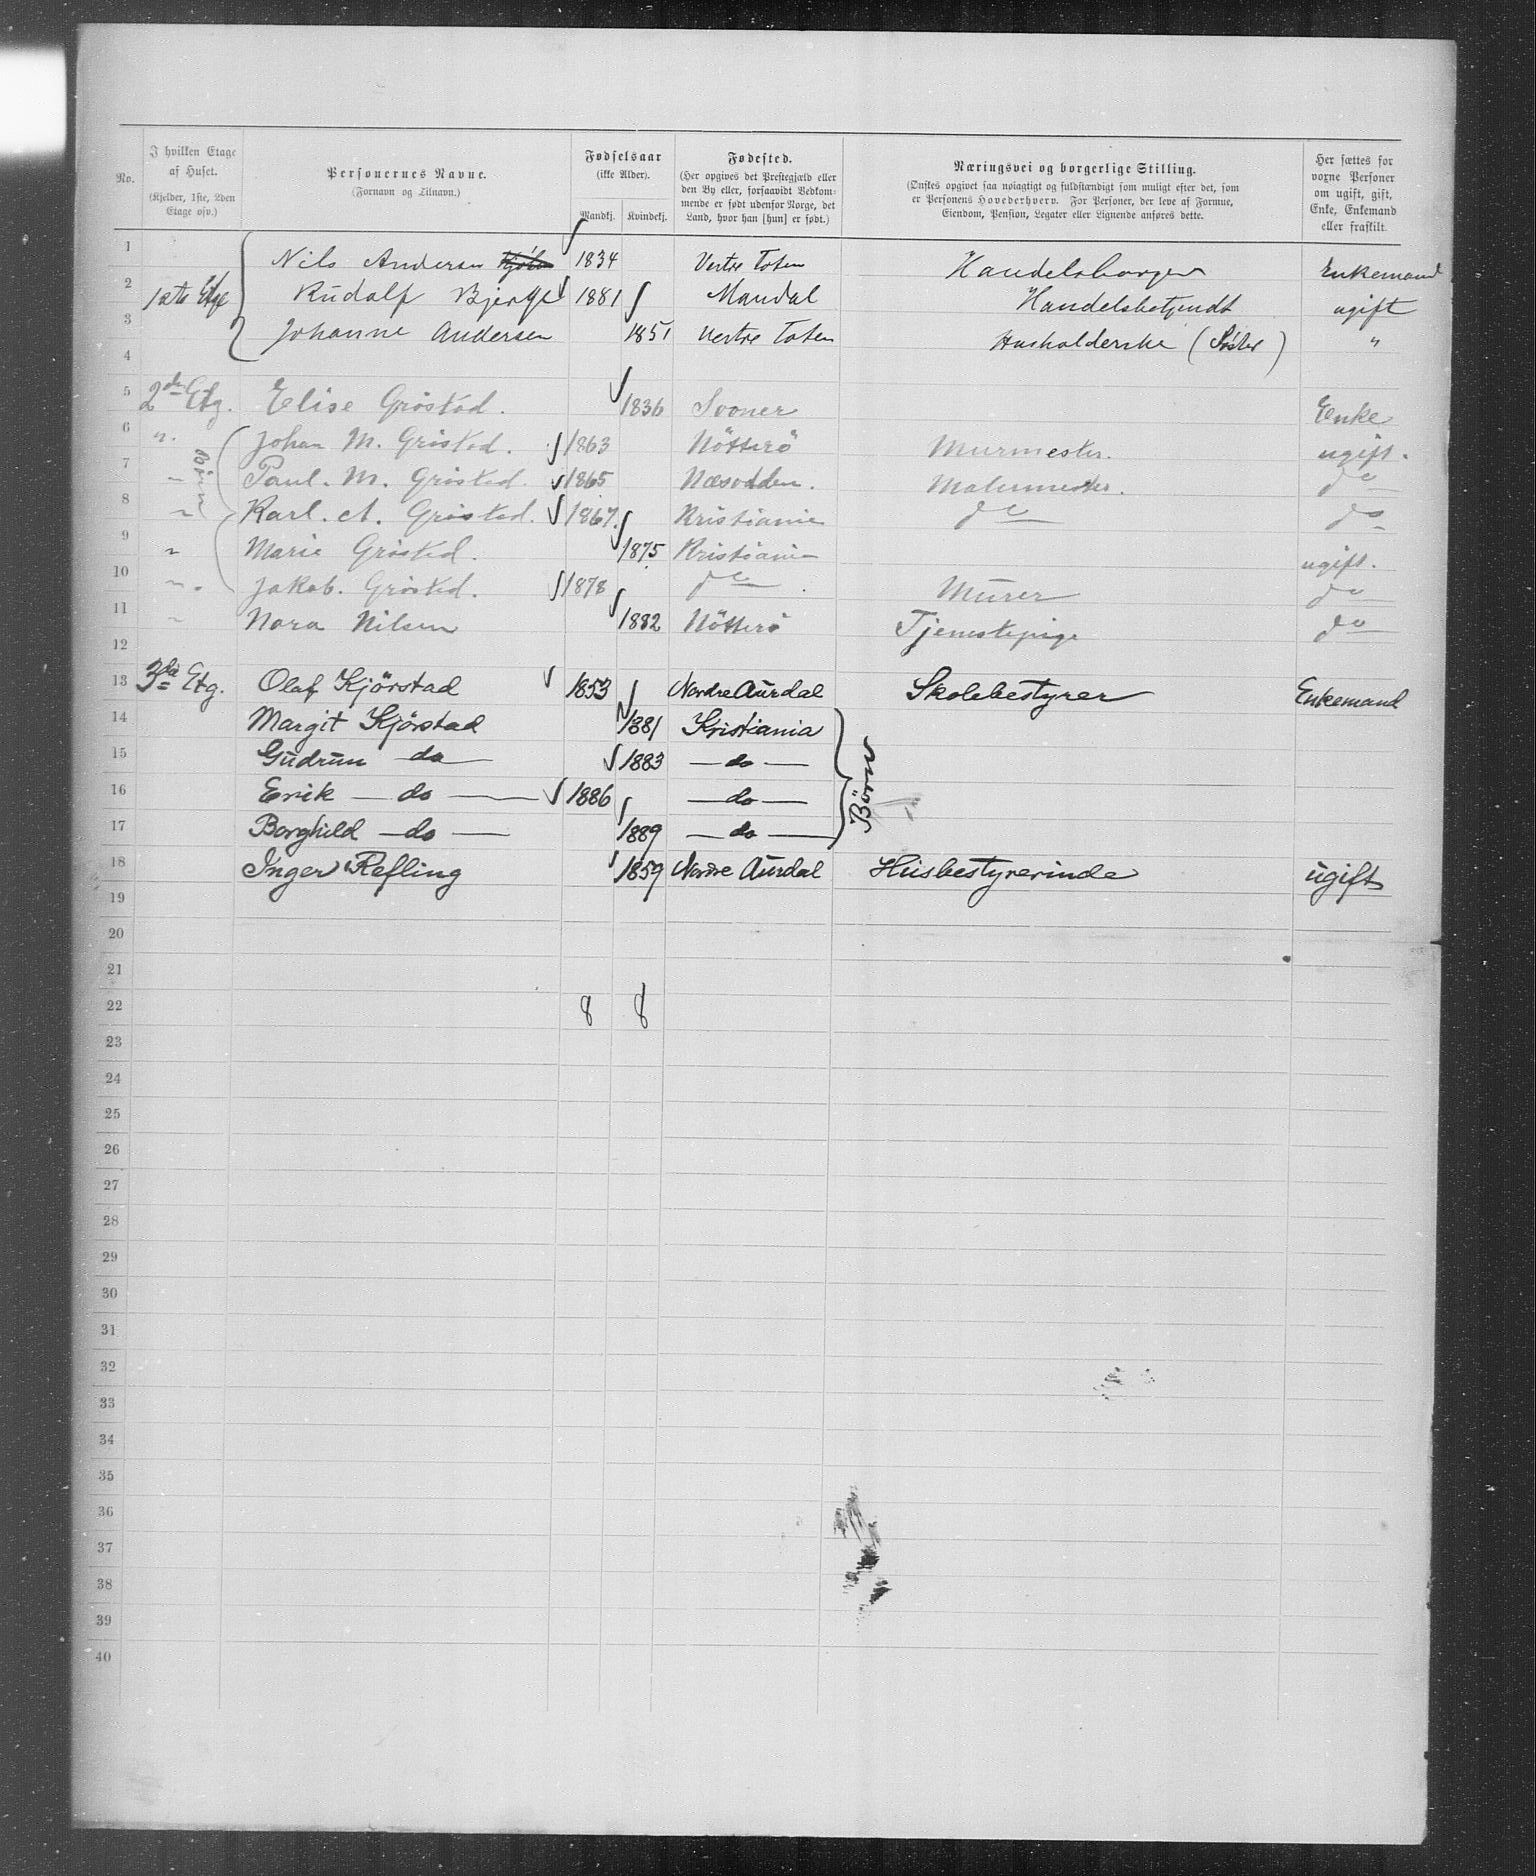 No. | I hvilken Etage af Huset. (Kjelder, 1ste, 2den Etage osv.) | Personernes Navne. (Fornavn og Tilnavn.) | Fødselsaar (ikke Alder). Mandkj. Kvindekj. | Fødested. (Her opgives det Prestegjæld eller den By eller, forsaavidt Vedkommende er født udenfor Norge, det Land, hvor han [hun] er født.) | Næringsvei og borgerlige Stilling. (Ønskes opgivet saa nøiagtigt og fuldstændigt som muligt efter det, som er Personens Hovederhverv. For Personer, der leve af Formue, Eiendom, Pension, Legater eller Lignende anføres dette. | Her sættes for voxne Personer om ugift, gift, Enke, Enkemand eller fraskilt.
1 Nils Andersen 1834 Vestre Toten Handelsborger Enkemand
2 1ste Etge Rudolf Bjerge 1881 Mandal Handelsbetjendt ugift
3 Johanne Andersen 1851 Vestre Toten Husholderske (Søster) "
4
5 2den Etg. Elise Gröstad. 1836 Enke
6 ". Johan M. Gröstad. 1863 Nötterö Murmester. ugift.
7 " Paul. M. Gröstad. 1865 Næsodden. Malermester. do
8 " Karl. A. Gröstad. 1867. Kristiania do do
9 " Marie Gröstad. 1875 Kristiania ugift.
10 " Jakob. Gröstad. 1878 do Murer do
Børn
11 " Nora Nilsen 1882 Nötterö Tjenestepige do
12
13 3die Etg. Olaf Kjörstad 1853 Nordre Aurdal Skolebestyrer Enkemand
14 Margit Kjörstad 1881 Kristiania
15 Gudrun do 1883 do
16 Erik do 1886 do
17 Borghild do 1889 do
Börn
18 Inger Refling 1859 Nordre Aurdal Husbestyrerinde ugift
19
20
21
22 8 8
23
24
25
26
27
28
29
30
31
32
33
34
35
36
37
38
39
40